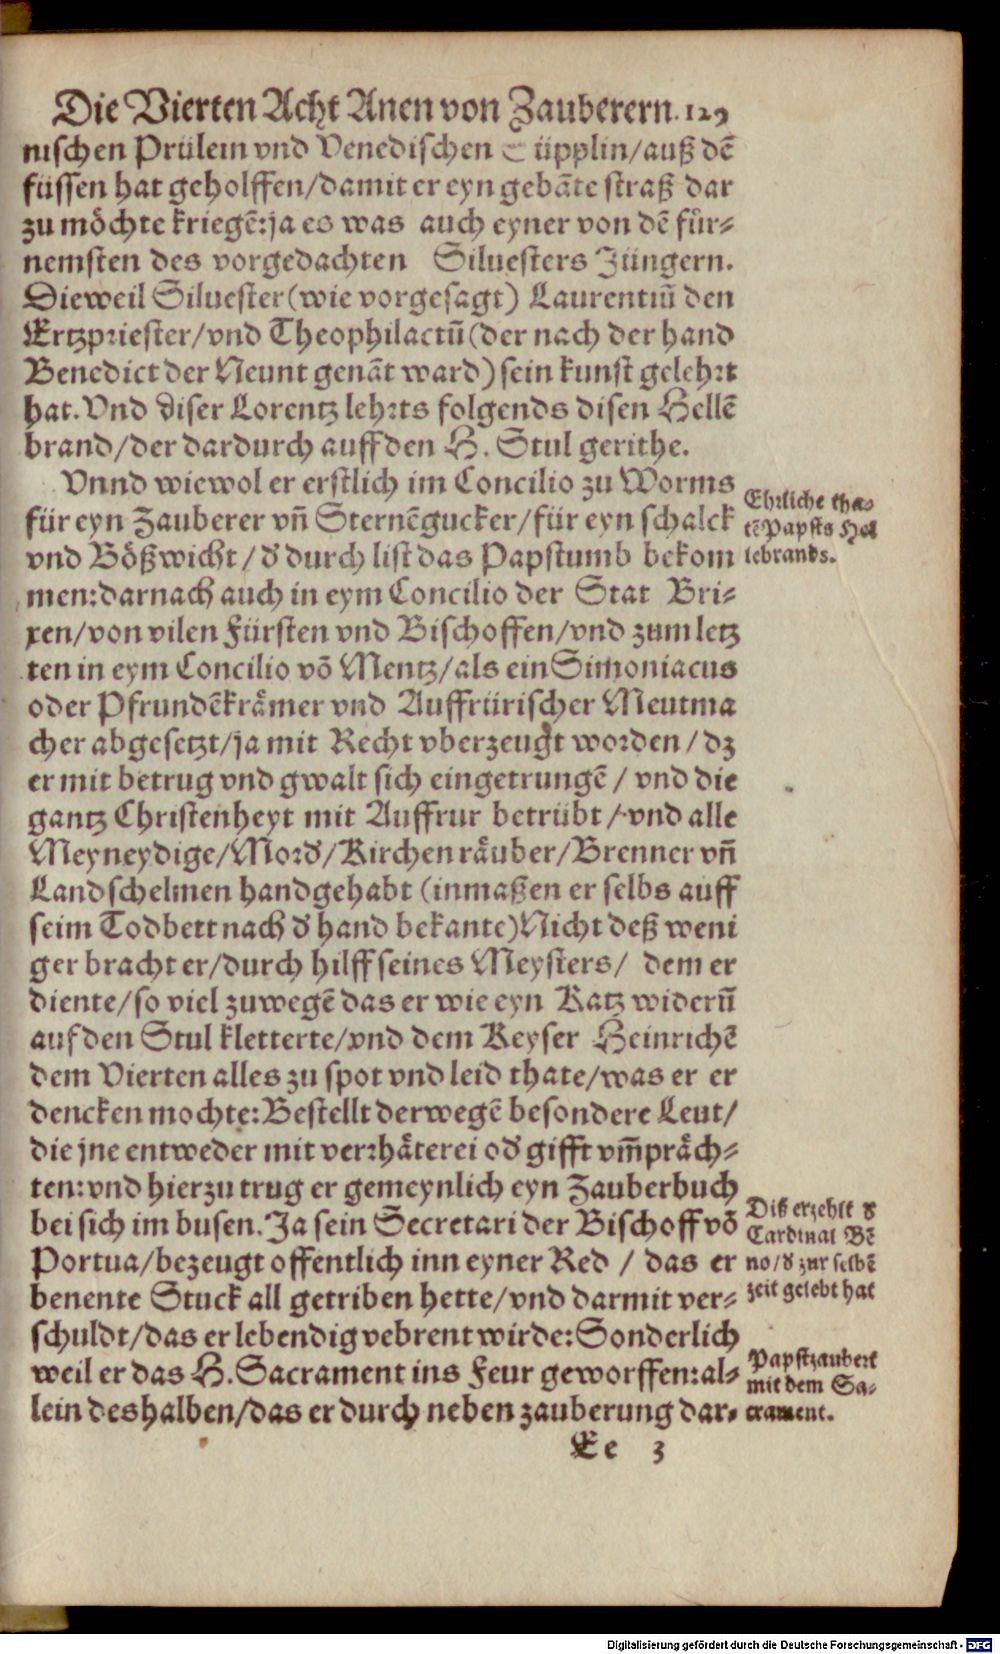 Die Vierten Acht Anen von Zauberern. 129
nischen Prülein vnd Venedischen Süpplin/auß dẽ
füssen hat geholffen/damit er eyn gebãte straß dar
zu möchte kriegẽ: ja es was auch eyner von dẽ für-
nemsten des vorgedachten Siluesters Jüngern.
Dieweil Siluester (wie vorgesagt) Laurentiũ den
Ertzpriester/vnd Theophilactũ (der nach der hand
Benedict der Neunt genãt ward) sein kunst gelehrt
hat. Vnd diser Lorentz lehrts folgends disen Hellẽ
brand/der dardurch auff den H. Stul gerithe.
Vnnd wiewol er erstlich im Concilio zu Worms
für eyn Zauberer vñ Sternẽgucker/für eyn schalck
vnd Bößwicht/ď durch list das Papstumb bekom
men: darnach auch in eym Concilio der Stat Bri-
xen/von vilen Fürsten vnd Bischoffen/vnd zum letz
ten in eym Concilio võ Mentz/als ein Simoniacus
oder Pfrundẽkrämer vnd Auffrürischer Meutma
cher abgesetzt/ja mit Recht vberzeugt worden/dz
er mit betrug vnd gwalt sich eingetrungẽ/vnd die
gantz Christenheyt mit Auffrur betrübt/vnd alle
Meyneydige/Morď/Kirchenräuber/Brenner vñ
Landschelmen handgehabt (inmaßen er selbs auff
seim Todbett nach ď hand bekante) Nicht deß weni
ger bracht er/durch hilff seines Meysters/ dem er
diente/so viel zuwegẽ das er wie eyn Katz widerũ
auf den Stul kletterte/vnd dem Keyser Heinrichẽ
dem Vierten alles zu spot vnd leid thate/was er er
dencken mochte: Bestellt derwegẽ besondere Leut/
die jne entweder mit verrhäterei oď gifft vm̃präch-
ten: vnd hierzu trug er gemeynlich eyn Zauberbuch
bei sich im busen. Ja sein Secretari der Bischoff võ
Portua/bezeugt offentlich inn eyner Red / das er
benente Stuck all getriben hette/vnd darmit ver-
schuldt/das er lebendig vebrent wirde: Sonderlich
weil er das H. Sacrament ins Feur geworffen: al-
lein deshalben/das er durch neben zauberung dar-
Ee 3
Ehrliche tha-
tẽ Papsts Hel
lebrands.
Diß erzehlt ď
Cardinal Bẽ
no/ď zur selbẽ
zeit gelebt hat
Papstzaubert
mit dem Sa-
crament.
Digitalisierung gefördert durch die Deutsche Forschungsgemeinschaft - DFG